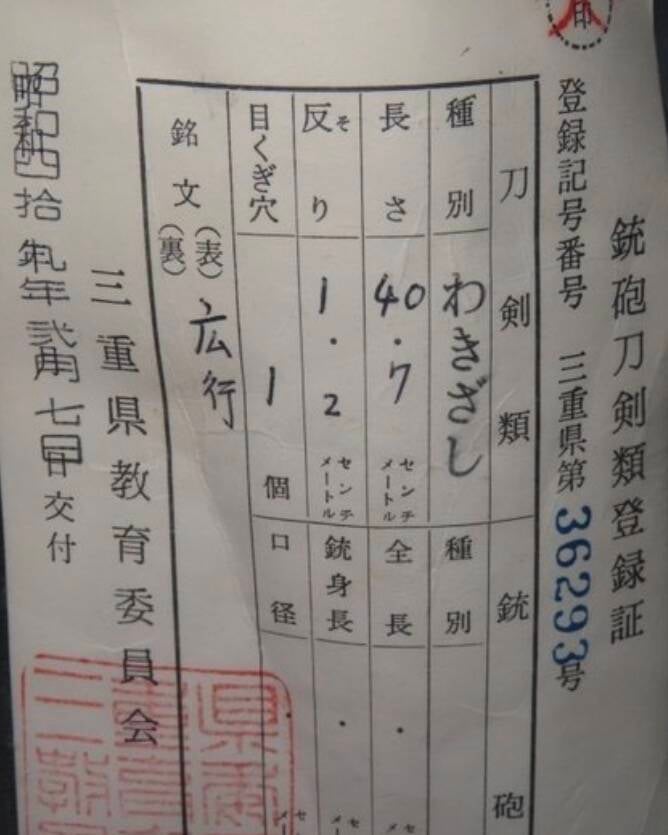 印
銃砲刀剣類登録証
登録記号番号 三重県第36293号
刀剣類
種別 わきざし
長さ 40.7 センチメートル
反り そ 1.2 センチメートル
目くぎ穴 1 個
銘文 (表) 広行
(裏)
銃砲
種別
全長 ・ セ メ
銃身長 ・ セ メ
口径 ・ セ メ
三重県教育委員会
昭和四拾年弐月七日交付